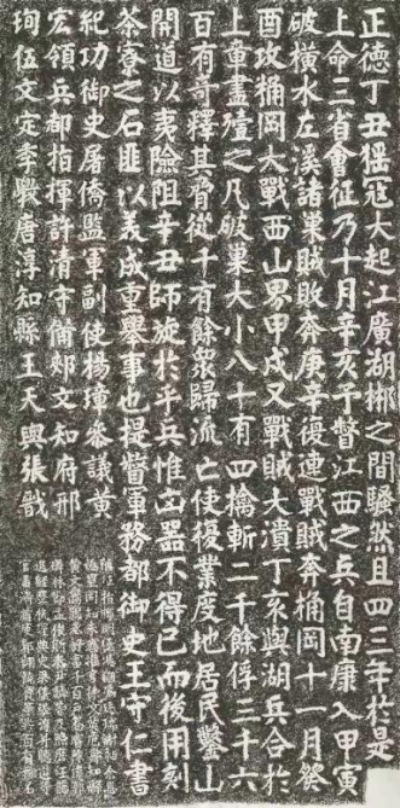 正德丁丑猺寇大起江廣湖郴之間騷然且四三年於是
上命三省會征乃十月辛亥予督江西之兵自南康入甲寅
破橫水左溪諸巢賊敗奔庚辛復連戰賊奔桶岡十一月癸
酉攻桶岡大戰西山界甲戌又戰賊大潰丁亥與湖兵合於
上章盡殪之凡破巢大小八十有四擒斬二千餘俘三千六
百有奇釋其脅從千有餘眾歸流亡使復業度地居民鑿山
開道以夷險阻辛丑師旋於乎兵惟凶器不得已而後用刻
茶寮之石匪以美成重舉事也提督軍務都御史王守仁書
紀功御史屠僑監軍副使楊璋參議黃
宏領兵都指揮許清守備郟文知府邢
珣伍文定季斆唐淳知縣王天與張戩